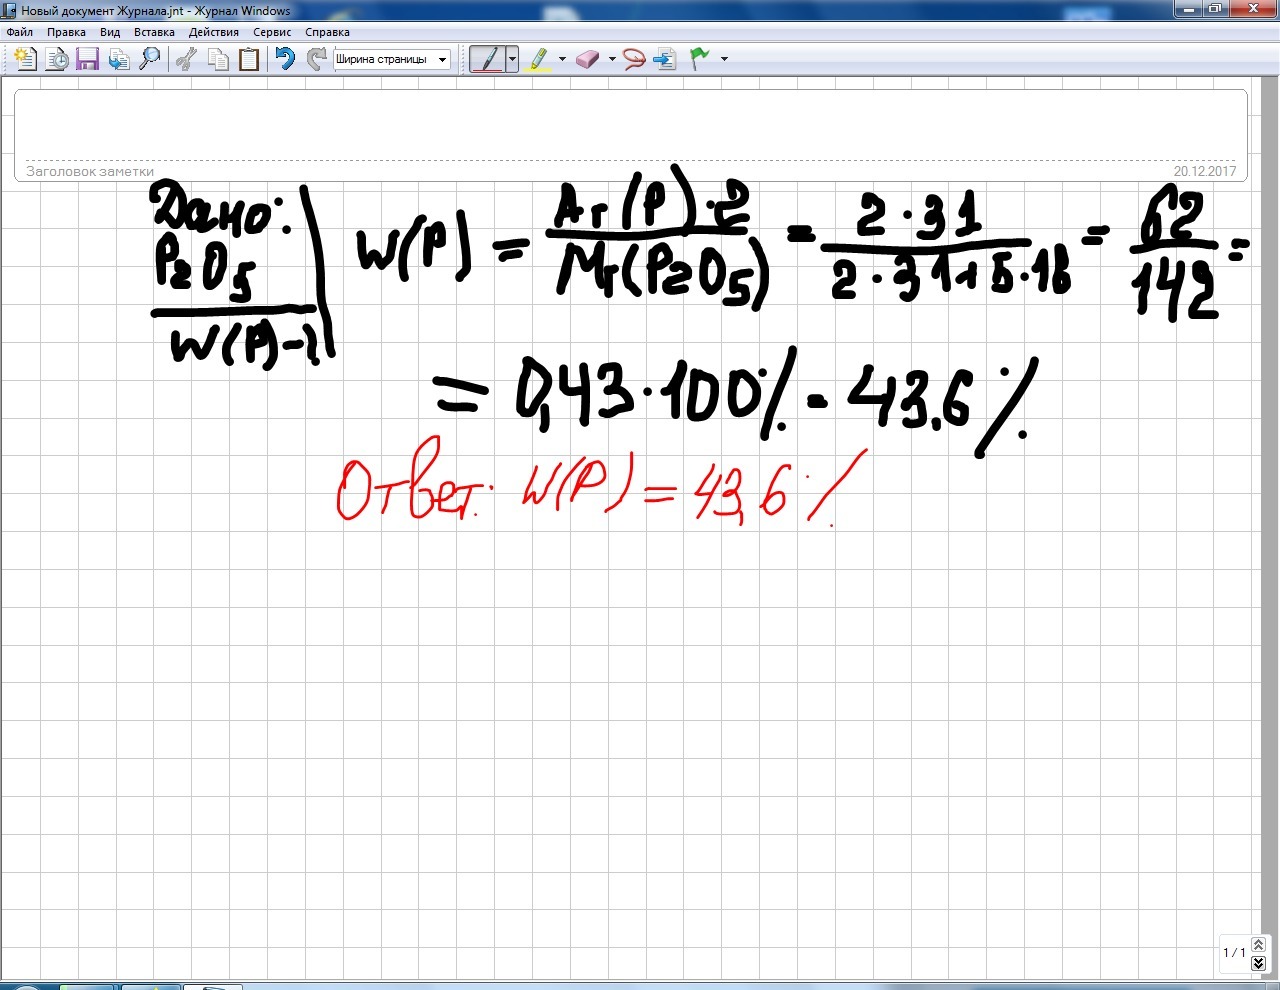 Новый документ Журнала.jnt - Журнал Windows
Файл Правка Вид Вставка Действия Сервис Справка
Ширина страницы
Заголовок заметки 20.12.2017
Дано:
P2O5
W(P)-?
W(P) = Ar(P)·2 / Mr(P2O5) = 2·31 / 2·31+5·16 = 62 / 142 =
= 0,43·100% = 43,6%
Ответ: W(P) = 43,6%
1 / 1